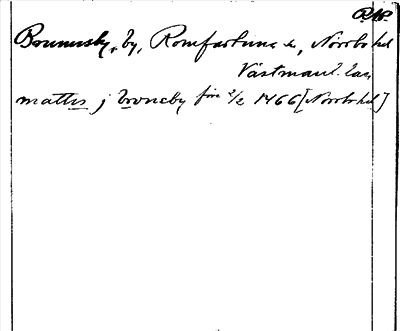 Brunnsby, by, Romfartuna sn, Norrbo hd
Västmanl. län
mattis j bronæby fire 2/2 1466 [Norrbo hd]